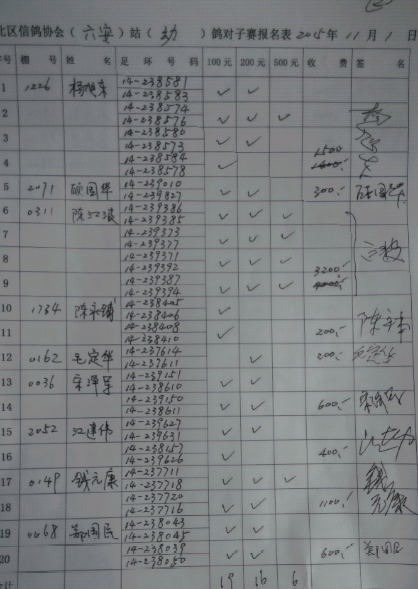 北区信鸽协会（六安）站（幼）鸽对子赛报名表 2015年11月1日
序号 棚号 姓名 足环号码 100元 200元 500元 收费 签名
1 1226 杨旭东 14-238581 ✓ ✓
14-238583
2 14-238574 ✓ ✓ ✓
14-238576
3 14-238580 ✓ ✓
14-238573
4 14-238584 ✓ 1500
14-238578
5 2071 顾国华 14-239010 ✓ ✓ 300.-
14-239827
6 0311 14-239386 ✓ ✓ ✓
14-239385
7 14-239373 ✓ ✓ ✓
14-239377
8 14-239371 ✓ ✓ ✓
14-239392
9 14-239387 ✓ ✓ ✓ 3200.-
14-239394
10 1734 14-238405 ✓
14-238406
11 14-238408 ✓ 200.-
14-238410
12 0162 毛定华 14-237614 ✓ 200.-
14-237611
13 0036 14-239151 ✓ ✓
14-238610
14 14-239150 ✓ ✓ 600.-
14-238611
15 2052 江建伟 14-239627 ✓ ✓
14-239631
16 14-238157 ✓ 400.-
14-239626
17 0149 钱元康 14-237711 ✓ ✓ ✓
14-237718
18 14-237720 ✓ ✓ 1100.-
14-237716
19 0468 郑国民 14-238043 ✓ ✓
14-238045
20 14-238039 ✓ ✓ 600.-
14-238050
合计 19 16 6